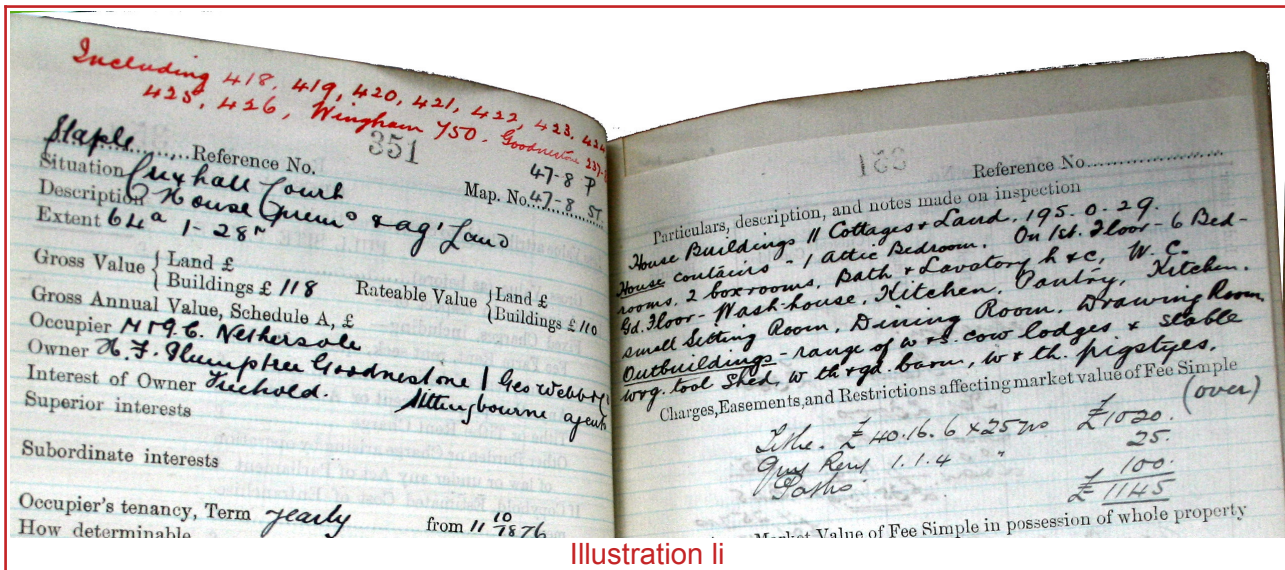 Including 418, 419, 420, 421, 422, 423, 424
425, 426, Wingham 750. Goodnestone 237-8
351
Staple Reference No.
47-8 P
Situation Crixhall Court Map. No. 47-8 ST.
Description House Prems & ag' Land
Extent 64a 1-28r
Gross Value { Land £
Buildings £ 118 Rateable Value { Land £
Buildings £ 110
Gross Annual Value, Schedule A, £
Occupier M & G. C. Nethersole
Owner H. F. Plumptree Goodnestone | Geo Webb
Interest of Owner Freehold. Sittingbourne agents
Superior interests
Subordinate interests
Occupier's tenancy, Term yearly from 11 10 1876
How determinable
Reference No.
Particulars, description, and notes made on inspection
House Buildings 11 Cottages & Land. 195. 0. 29.
House contains - 1 attic Bedroom. On 1st. Floor - 6 Bed-
rooms, 2 boxrooms, Bath & Lavatory h & c, W. C.
Gd. Floor - Wash-house, Kitchen, Pantry, Kitchen.
small Sitting Room, Dining Room. Drawing Room
Outbuildings - range of w & s. cow lodges & stable
w & g. tool shed, w th & gd. barn, w & th. pigstyes.
Charges, Easements, and Restrictions affecting market value of Fee Simple
(over)
Tithe. £40.16.6 x 25 £1020.
Rent 1.1.4 " 25.
Paths 100.
£ 1145
Market Value of Fee Simple in possession of whole property
Illustration Ii